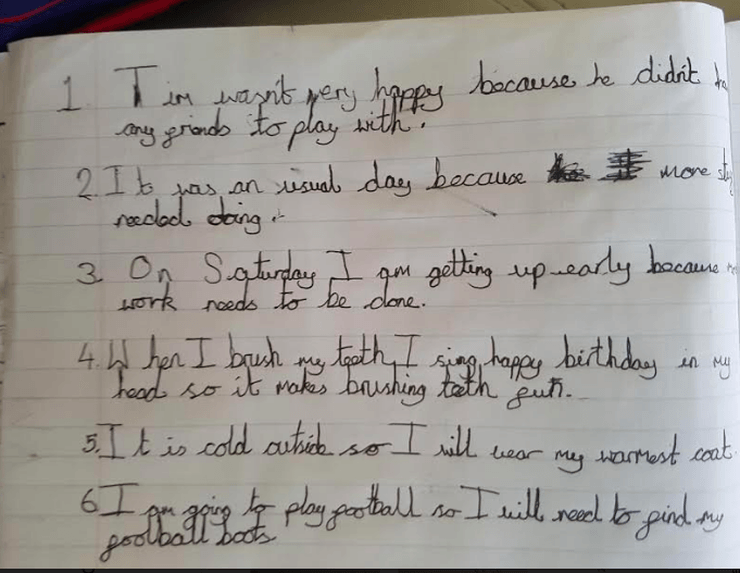 1 Tim wasn't very happy because he didn't
any friends to play with.
2. It was an usual day because more
needed doing.
3 On Saturday I am getting up early because
work needs to be done.
4. When I brush my teeth, I sing happy birthday in my
head so it makes brushing teeth fun.
5. It is cold outside so I will wear my warmest coat
6 I am going to play football so I will need to find my
football boots